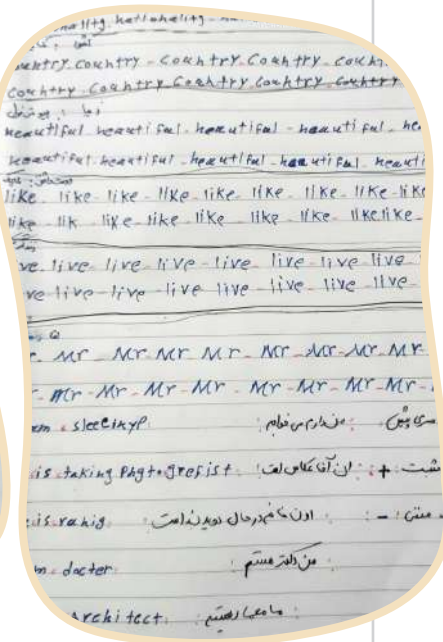 nality, nationality
country country - country - country - country
country country country country country
زیبا
beautiful beautiful beautiful - beautiful
beautiful beautiful beautiful - beautiful
like like - like - like like like like - like like
like lik like - like like like - like likelike -
live live live - live live live live
live - live - live live live - live live
Mr Mr - Mr Mr - Mr - Mr - Mr - Mr
Mr - Mr - Mr - Mr - Mr - Mr - Mr - Mr
sleeinyp من دارم می خوابم
is taking Phgto grefist این آقا عکاس است مثبت +
is ranig اون خانم در حال دویدن است منفی -
docter من دکتر هستم
Architect ما معمار هستیم